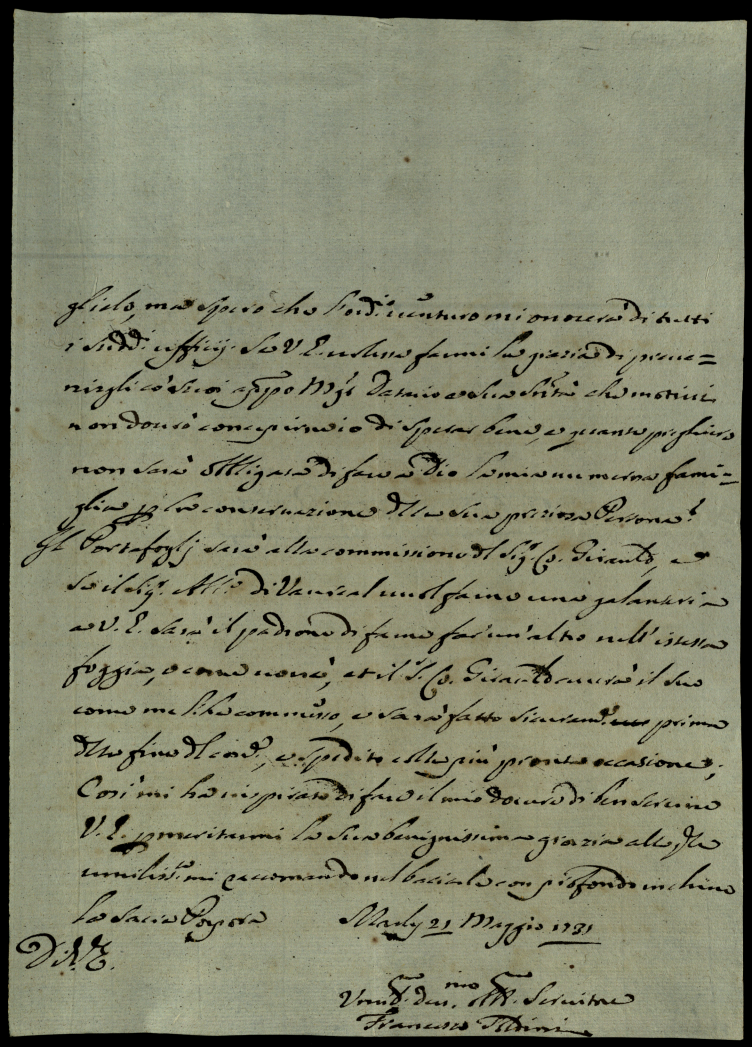 glielo, ma spero che l'ord.o venturo mi onorerà di tutti
i sudd.i ufficij. Se V. E. volesse farmi la grazia di preve=
nirgli co' suoi appo Mg.r Datario e Sua Sant.tà che motivi
non dovrò concepirne io di sperar bene, e quante preghiere
non sarà obbligata di fare a Dio la mia numerosa fami=
glia p la conservazione della sua preziosa Persona!
Il Portafoglj sarà alla commissione del Sig.r Co. Girauld, e
se il Sig.r Abb.e di Vaureal vuol farne una galanteria
a V. E. sarà il padrone di farne far un'altro nell'istessa
foggia, o come vorrà, et il S.r Co. Girauld avrà il suo
come me l'ha commesso, e sarà fatto sicuram.e prima
della fine del cor.e, e spedito colla più pronta occasione;
Così mi ha inspirato di fare il mio dovere di ben servire
V. E. p meritarmi la sua benignissima grazia alla qle
umilissim.e mi raccomando nel baciarle con profondo inchino
la Sacra Porpora Marly 21 Maggio 1731
Di V. E.
Umil.mo dev.mo obb.mo Servitore
Francesco